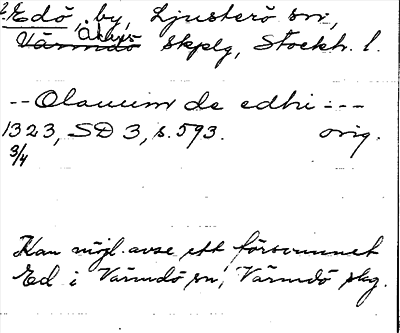 Edö, by, Ljusterö sn,
Åkers
Värmdö skplg, Stockh. l.
-- Olauum de edhi ---
1323, SD 3, s. 593. orig.
3/4
Kan möjl. avse ett försvunnet
Ed i Värmdö sn, Värmdö skg.